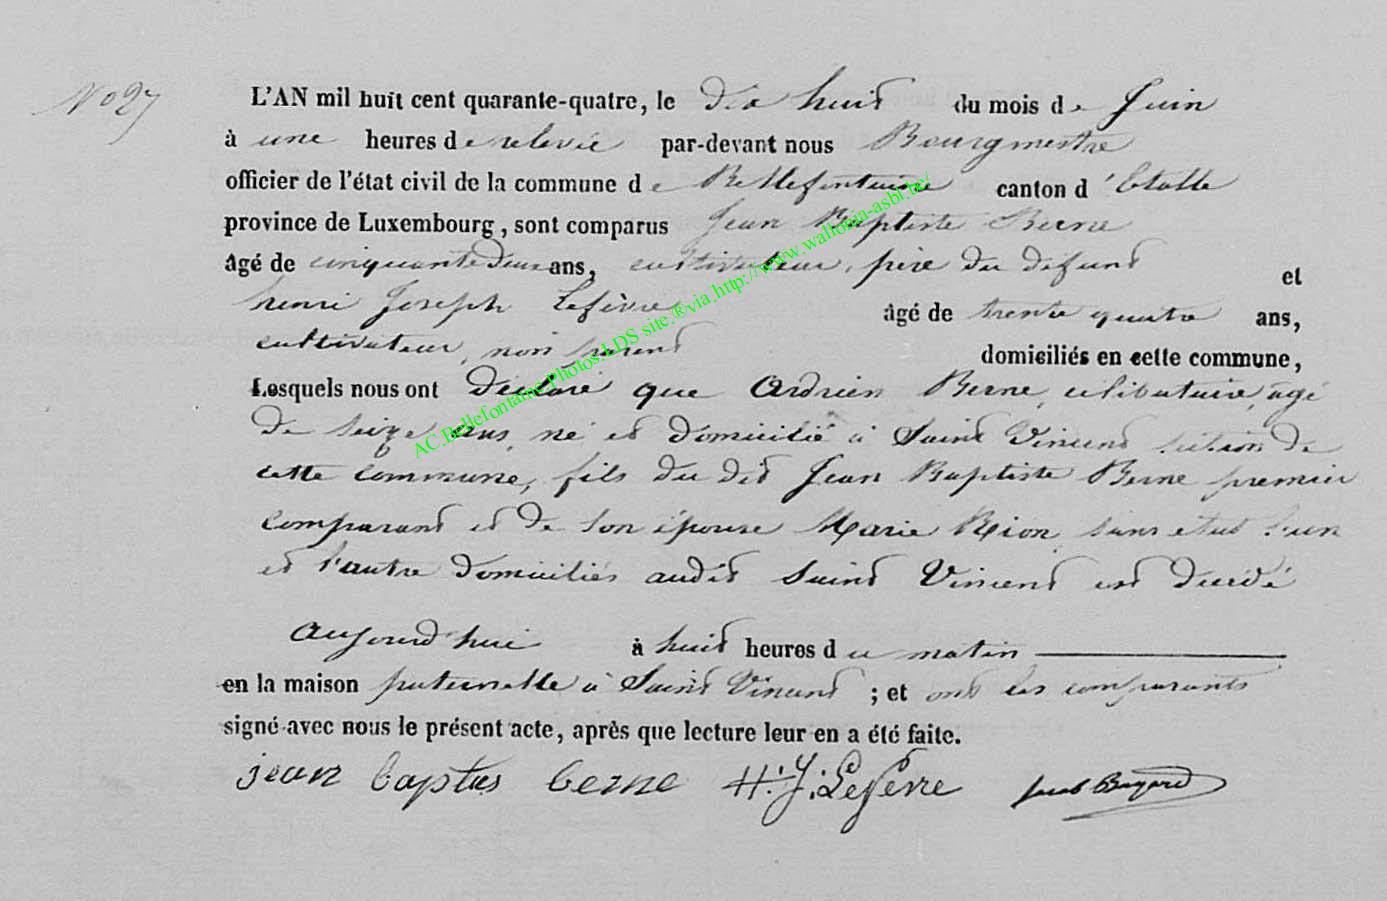 No 27
L'AN mil huit cent quarante-quatre, le dix huit du mois de Juin
à une heures de relevée par-devant nous Bourgmestre
officier de l'état civil de la commune de Bellefontaine canton d'Etalle
province de Luxembourg, sont comparus Jean Baptiste Berne
âgé de cinquante deux ans, cultivateur, père du defunt et
henri Joseph Lefèvre âgé de trente quatre ans,
cultivateur, non parent domiciliés en cette commune,
Lesquels nous ont déclaré que Adrien Berne, celibataire, agé
de seize ans, né et domicilié à Saint Vincent section de
cette commune, fils du dit Jean Baptiste Berne premier
comparant et de son épouse Marie Rion sans etat l'un
et l'autre domiciliés audit Saint Vincent est décédé
Aujourd'hui à huit heures du matin
en la maison paternelle à Saint Vincent ; et ont les comparants
signé avec nous le présent acte, après que lecture leur en a été faite.
jean baptis berne H. J. Lefevre Jacob Bayard
AC.Bellefontaine.Photos.LDS site.®via.http://www.wallonia-asbl.be/